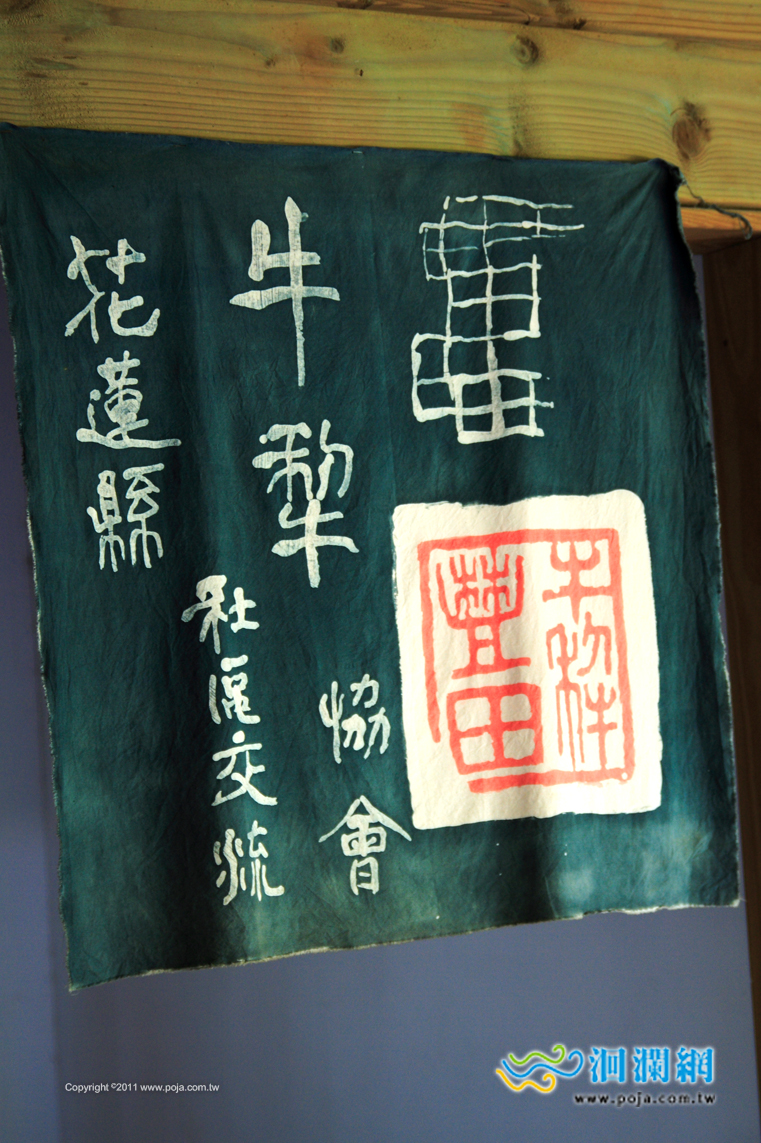 花蓮縣
牛犁
社區交流
協會
牛犁
豐田
Copyright ©2011 www.poja.com.tw
洄瀾網
www.poja.com.tw